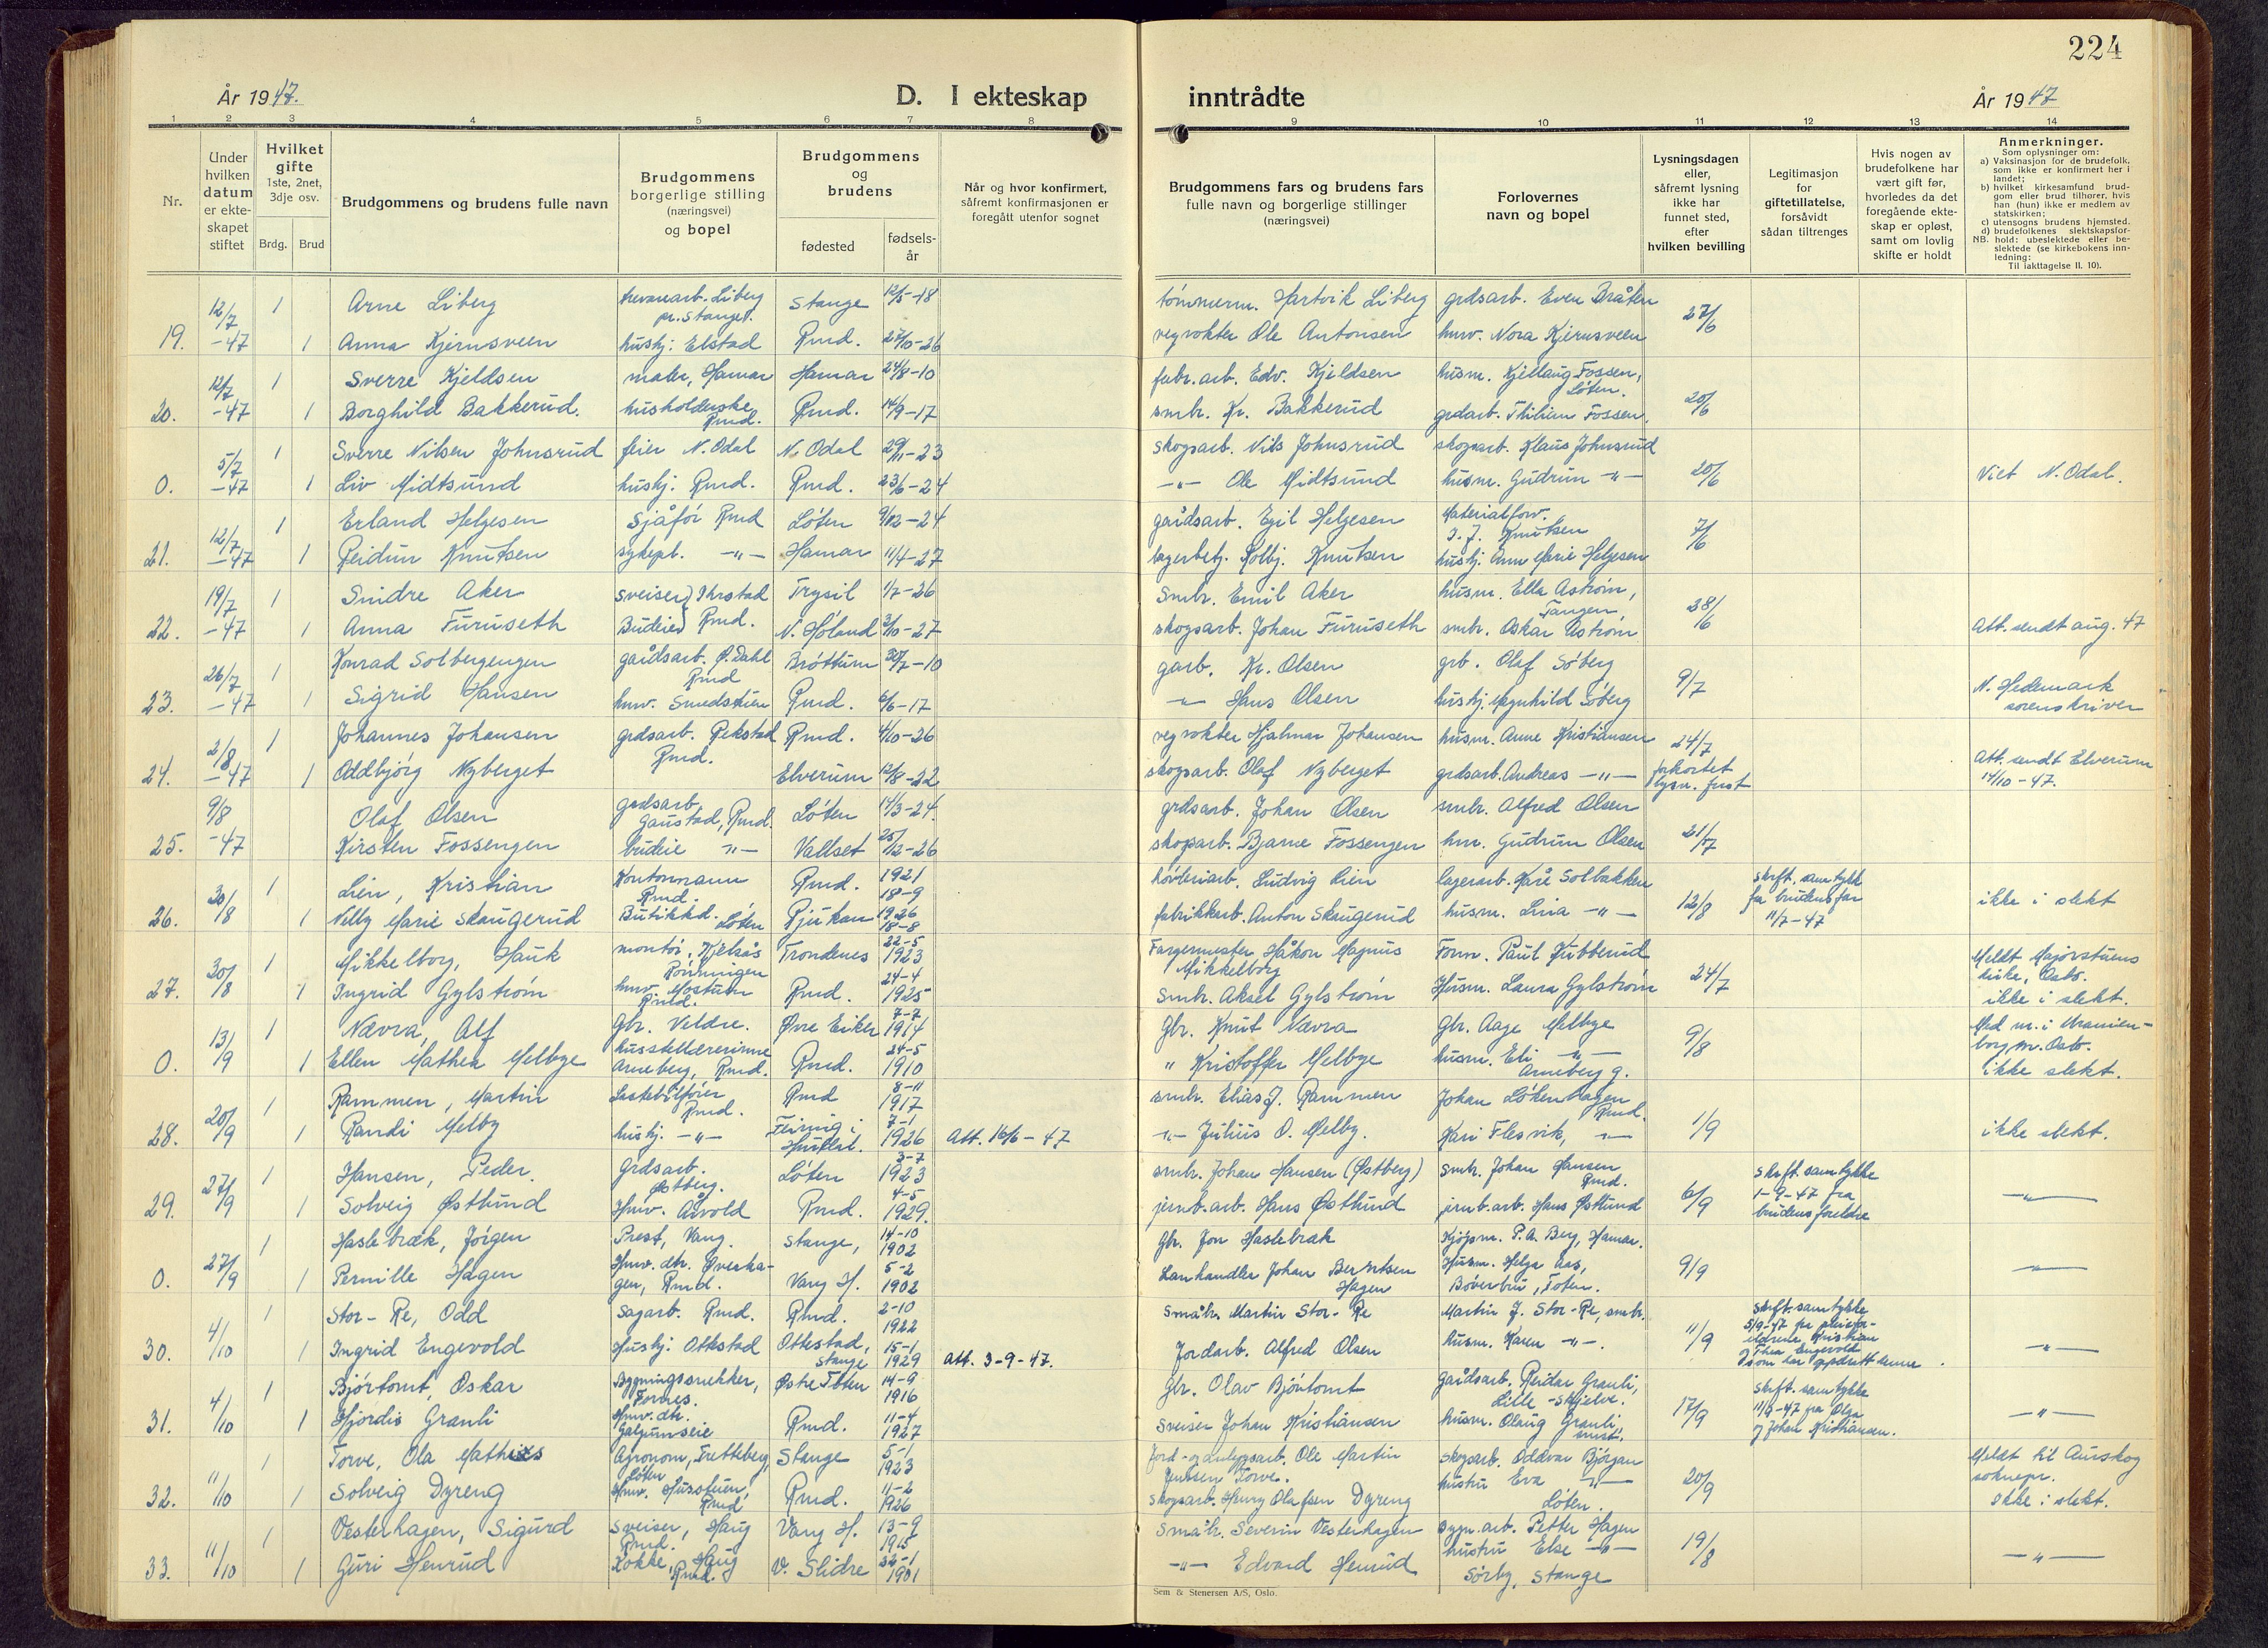 224
År 1947.
D. I ekteskap
inntrådte
År 1947
1 2 3 4 5 6 7 8 9 10 11 12 13 14
Nr.
Under hvilken datum er ekteskapet stiftet
Hvilket gifte
1ste, 2net, 3dje osv.
Brdg. Brud
Brudgommens og brudens fulle navn
Brudgommens borgerlige stilling (næringsvei) og bopel
Brudgommens og brudens
fødested
fødsels-år
Når og hvor konfirmert, såfremt konfirmasjonen er foregått utenfor sognet
Brudgommens fars og brudens fars fulle navn og borgerlige stillinger (næringsvei)
Forlovernes navn og bopel
Lysningsdagen eller, såfremt lysning ikke har funnet sted, efter hvilken bevilling
Legitimasjon for giftetillatelse, forsåvidt sådan tiltrenges
Hvis nogen av brudefolkene har vært gift før, hvorledes da det foregående ekteskap er opløst, samt om lovlig skifte er holdt
Anmerkninger.
Som oplysninger om:
a) Vaksinasjon for de brudefolk, som ikke er konfirmert her i landet;
b) hvilket kirkesamfund brudgom eller brud tilhører, hvis han (hun) ikke er medlem av statskirken;
c) utensogns brudens hjemsted.
d) brudefolkenes slektskapsforhold: ubeslektede eller beslektede (se kirkebokens innledning:
NB.
Til iakttagelse II. 10).
12/7 1 Arne Liberg Liberg pr. Stange. Stange 12/5-18 tømmerm. Hartvik Liberg grdsarb. Even Bråten 27/6
19. -47 1 Anna Kjernsveen hushj. Elstad Rmd. 27/10-26 vegvokter Ole Antonsen husv. Nora Kjernsveen
12/7 1 Sverre Kjeldsen maler, Hamar Hamar 24/8-10 fabr.arb. Edv. Kjeldsen husm. Kjellaug Fossen, Løten.
20. -47 1 Borghild Bakkerud. husholderske Rmd. Rmd. 14/9-17 smbr. Kr. Bakkerud grdarb. Thilian Fossen. 20/6
5/7 1 Sverre Nilsen Johnsrud feier N. Odal N. Odal 29/11-23 skogsarb. Nils Johnsrud skogsarb. Klaus Johnsrud
0. -47 1 Liv Midtsund hushj. Rmd. Rmd. 23/6-24 -"- Ole Midtsund husm. Gudrun -"- 20/6 Viet N. Odal.
12/7 1 Erland Helgesen Sjåfør Rmd Løten -24 gårdsarb. Egil Helgesen Materialforv. Knutsen 7/6
21. -47 1 Reidun Knutsen sykepl. -"- Hamar 11/4-27 lagerbetj. Kolbj. Knutsen hushj. Ann Marie Helgesen
19/7 1 Sindre Aker sveiser Rmd. Trysil 1/7-26 Smbr. Emil Aker husm. Ella Åstrøm, Tangen 28/6
22. -47 1 Anna Furuseth Budeie N. Høland 3/10-27 skogsarb. Johan Furuseth smbr. Oskar Åstrøm Att. sendt aug. 47
26/7 1 Konrad Solbergengen gårdsarb. Ø. Dahl Rmd Brøttum 30/7-10 garb. Kr. Olsen grb. Olaf Søberg 9/7
23. -47 1 Sigrid Hansen husv. Smedstuen Rmd. 6/6-17 -"- Hans Olsen hushj. Magnhild Søberg N. Hedemark sorenskriver
2/8 1 Johannes Johansen grdsarb. Rekstad Rmd. Rmd. 4/10-26 vegvokter Hjalmar Johansen husm. Anne Kristiansen 24/7
24. -47 1 Oddbjørg Nyberget Elverum 12/8-22 skogsarb. Olaf Nyberget grdsarb. Andreas -"- forkortet lysn. frist Att. sendt Elverum 14/10-47.
9/8 Olaf Olsen grdsarb. Gaustad, Rmd. Løten 14/3-24 grdsarb. Johan Olsen smbr. Alfred Olsen
25. -47 Kirsten Fossengen budeie -"- Vallset 25/12-26 skogsarb. Bjarne Fossengen hm. Gudrun Olsen 21/7
30/8 1 Lien, Kristian Kontormann Rmd. Rmd. 1921 18-9 høvleriarb. Ludvig Lien lagerarb. Kåre Solbakken 12/8 skrft. samtykke fra brudens far 11/7-47
26. 1 Nelly Marie Skaugerud Butikkd. Løten Rjukan 1926 18-8 fabrikkarb. Anton Skaugerud husm. Lina -"- ikke i slekt
30/8 1 Mikkelborg, Hauk montør, Kjelsås Trondenes 22-5 1923 Fargermester Håkon Magnus Mikkelborg Form. Paul Kubberud 24/7 Meldt Majorstuens kirke, Oslo.
27. 1 Ingrid Gylstrøm husv. Rmd. Rmd. 24-4 1925 Smbr. Aksel Gylstrøm Husm. Laura Gylstrøm ikke i slekt.
13/9 1 Nævra, Alf Gbr. Veldre. Øvre Eiker 7-7 1914 Gbr. Knut Nævra Gbr. Aage Melbye 9/8 Med m. i Uranienborg m. Oslo.
0. 1 Ellen Mathea Melbye husstellærerinne Arneberg, Rmd. Rmd. 24-5 1910 " Kristoffer Melbye husm. Eli -"- Arneberg g. ikke slekt.
20/9 1 Rammen, Martin Lastebilfører Rmd. Rmd 8-11 1917 smbr. Elias J. Rammen Johan Løkenhagen Rmd. 1/9
28. 1 Randi Melby hushj. -"- Feiring i Hurdal. 7-1 1926 Att. 16/6-47 -"- Julius O. Melby. Kari Flesvik, -"- ikke slekt.
27/9 1 Hansen, Peder. Grdsarb. Østberg. Løten 3-7 1923 smbr. Johan Hansen (Østberg) smbr. Johan Hansen Rmd. 6/9 skrft. samtykke 1-9-47 fra brudens foreldre
29. 1 Solveig Østlund Husv. Årvold Rmd. 4-5 1929. jernb.arb. Hans Østlund jernb.arb. Hans Østlund -"-
27/9 1 Haslebræk, Jørgen Prest, Vang. Stange, 14-10 1902 Gbr. Jon Haslebræk Kjøpm. P. A. Berg, Hamar. 9/9
0. 1 Pernille Hagen Husv. dtr. Øverhagen, Rmd. Vang H. 5-2 1902 Lanhandler Johan Berntsen Hagen Husm. Helga Aas, Bøverbru, Toten. -"-
4/10 1 Stor-Re, Odd sagarb. Rmd. Rmd. 2-10 1922 småbr. Martin Stor-Re Martin J. Stor-Re, smbr. 11/9 skrft. samtykke 5/9-47 fra pleieforeldrene Kristian og Thea Engevold som har oppdratt henne.
30. 1 Ingrid Engevold Hushj. Ottestad Ottestad, Stange 15-1 1929 Att. 3-9-47. Jordarb. Alfred Olsen husm. Karen -"-. -"-
4/10 1 Bjørtomt, Oskar Bygningssnekker, Fornes. Østre Toten 14-9 1916 Gbr. Olav Bjørtomt gårdsarb. Reidar Granli, Lille-Skjelve. 17/9 skrft. samtykke 11/9-47 fra Olga og Johan Kristiansen.
31. 1 Hjørdis Granli Husv. dtr. Rmd. 11-4 1927 sveiser Johan Kristiansen husm. Olaug Granli -"-
11/10 1 Torve, Ola Mathias Agronom, Fretteberg, Løten Stange 5-1 1923 Jord- og anleggsarb. Ole Martin Jenssen Torve. skogsarb. Oddvar Bjørgan 20/9 Meldt til Aurskog soknepr.
32. 1 Solveig Dyreng Husv. Husstuen, Rmd Rmd. 11-2 1926 skogsarb. Henry Olafsen Dyreng hustru Eva -"- Løten. Ikke i slekt.
11/10 1 Vesterhagen, Sigurd Sveiser, Haug Rmd. Vang H. 13-9 1915 Småbr. Severin Vesterhagen bygn.arb. Petter Hagen 19/8
33. 1 Guri Henrud Kokke, Haug Rmd. V. Slidre 22-1 1901 -"- Edvard Henrud hustru Else -"- Sørby, Stange -"-
Sem & Stenersen A/S, Oslo.